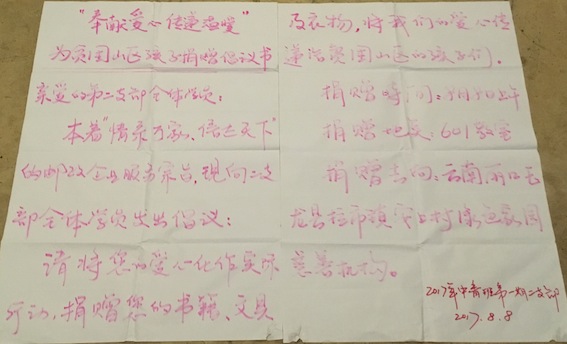 “奉献爱心 传递温暖”
为贫困山区孩子捐赠倡议书
亲爱的第二支部全体学员：
本着“情系万家、信达天下”
的邮政企业服务宗旨，现向二支
部全体学员发出倡议：
请将您的爱心化作实际
行动，捐赠您的书籍、文具
及衣物，将我们的爱心传
递给贫困山区的孩子们。
捐赠时间：
捐赠地点：601教室
捐赠去向：云南丽江玉
龙县拉市镇
慈善机构。
2017年中青班第一期二支部
2017.8.8